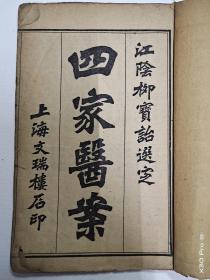 江陰柳寶詒選定
四家醫案
上海文瑞樓石印